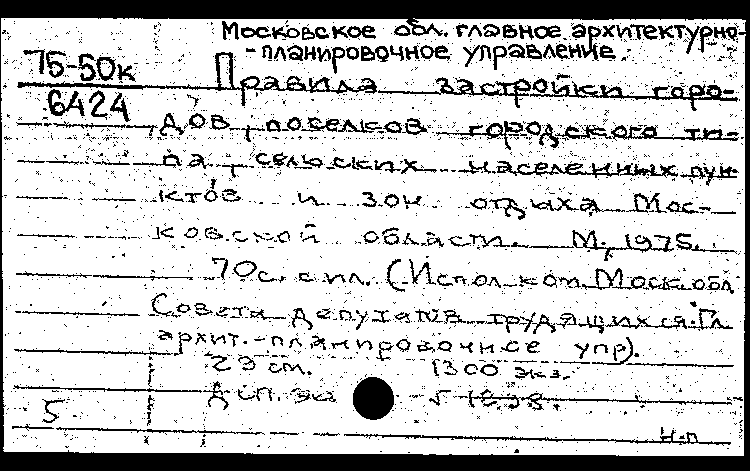 Московское обл. главное архитектурно-
-планировочное управление.
75-50к
6424
Правила застройки горо-
дов, поселков городского ти-
па, сельских населенных пун-
ктов и зон отдыха Мос-
ковской области. М., 1975.
70с. с ил. (Исполком Моск. обл
Совета депутатов трудящихся. Гл
архит.-планировочное упр).
23 см. 1300 экз.
5
н-п